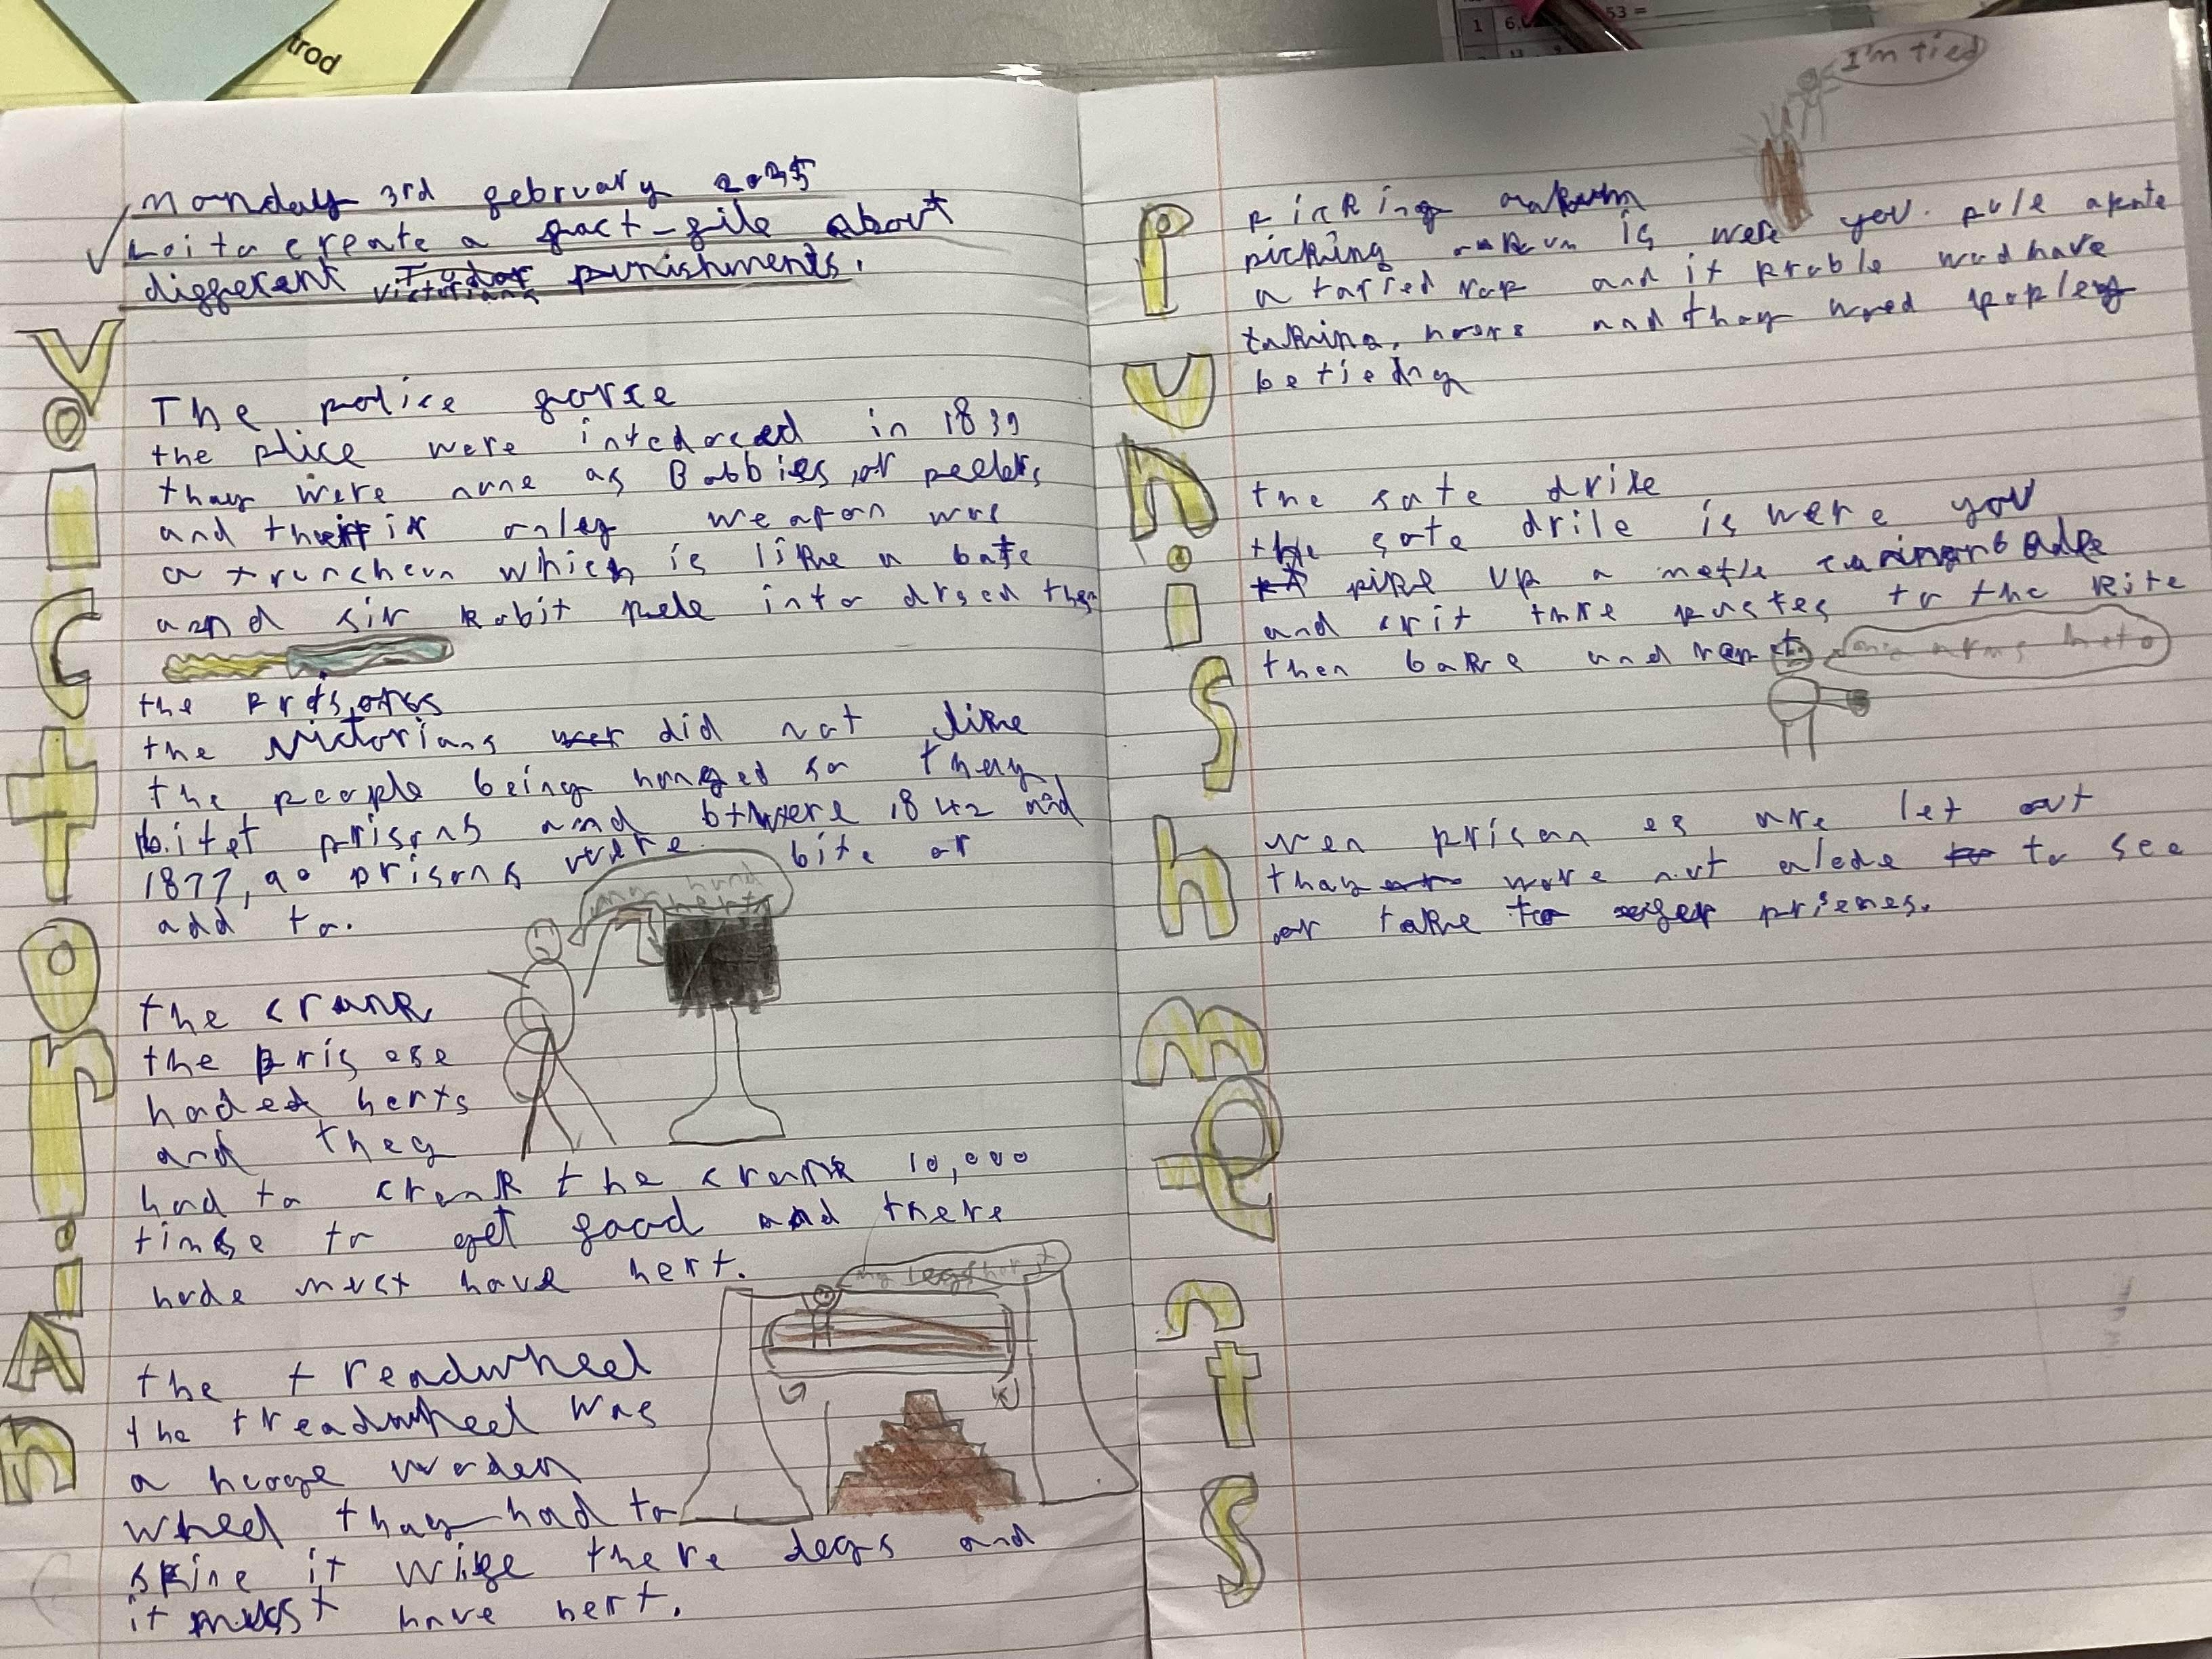 trod
1 6,
53 =
Monday 3rd february 2025
Loi to create a fact-file about
different Tudor punishments.
victorians
VictoriAn
The police force
the plice were intedoced in 1839
thay were none as Bobbies, or peelers,
and their only weapon was
a truncheun which is like a bate
and sir Robit pele into drsed then
the prisons
the Victorians did not like
the people being hanged so thay
bitet prisons and btwere 1842 and
1877, 90 prisons were bite or
add to.
my hand herts
the crank
the prisose
haded herts
and they
had to crank the crank 10,000
timse to get food and there
hode must have hert.
my legs hort
the treadwheel
the treadwheel was
a hooge woden
wheel thay had to
spine it wife there legs and
it must have hert.
punishments
I'm tied
picking oakum
picking oakum is were you pule apate
a tarred rop and it proble wod have
taking, hoors and thay wood poply
be tiedny
the sote drile
the sote drile is were you
pike up a metle canignbade
and crit thre pastes to the rite
then bake and rept
arms
wen prison es are let out
thay were not alode to see
or take to prisenes.